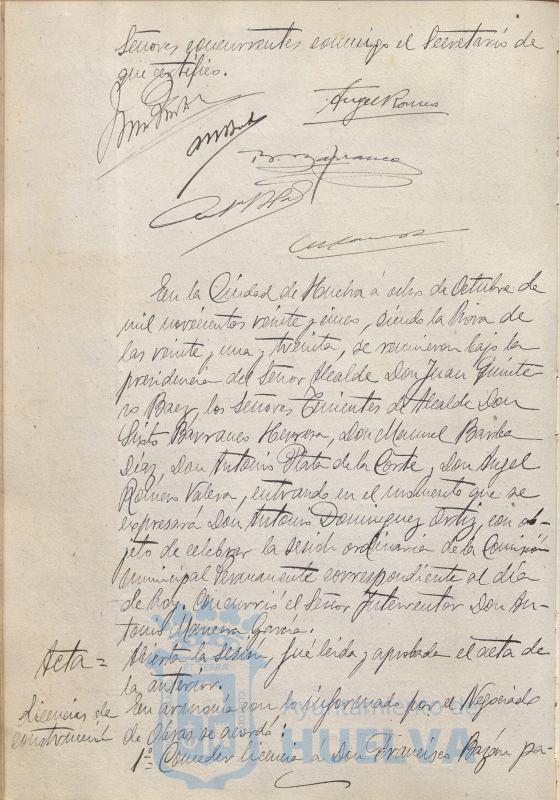 Señores concurrentes conmigo el Secretario de
que certifico.
Angel Romero
B. Barranco
En la Ciudad de Huelva á ocho de Octubre de
mil novecientos veinte y cinco, siendo la hora de
las veinte y una y treinta, se reunieron bajo la
presidencia del Señor Alcalde Don Juan Quinte-
ro Baez, los Señores Tenientes de Alcalde Don
Sixto Barranco Herrera, Don Manuel Barba
Díaz, Don Antonio Plata de la Corte, Don Angel
Romero Valera, entrando en el momento que se
expresará Don Antonio Dominguez Ortiz, con ob-
jeto de celebrar la sesión ordinaria de la Comisión
municipal Permanente correspondiente al día
de hoy. Concurrió el Señor Interventor Don An-
tonio García.
Acta = Abierta la sesión, fue leida y aprobada el acta de
la anterior.
Licencias de construcción
En armonía con lo informado por el Negociado
de Obras se acordó:
1º Conceder licencia a Don Francisco Bazán pa-
Ayuntamiento de
HUELVA